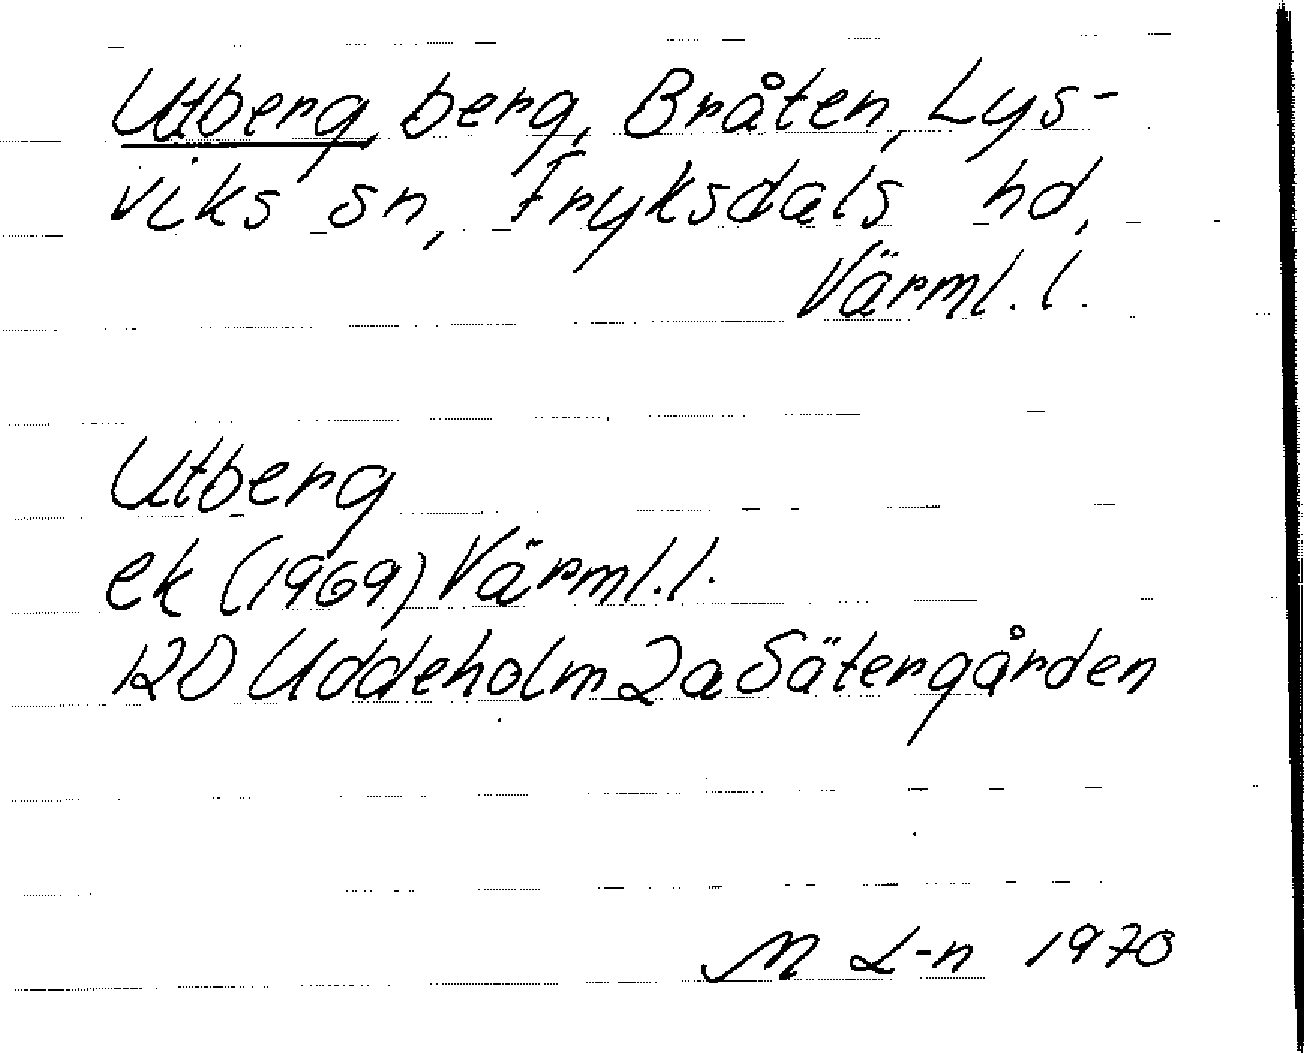 Utberg, berg, Bråten, Lys-
viks sn, Fryksdals hd,
Värml. l.
Utberg
ek (1969) Värml. l.
12D Uddeholm 2a Sätergården
M L-n 1970